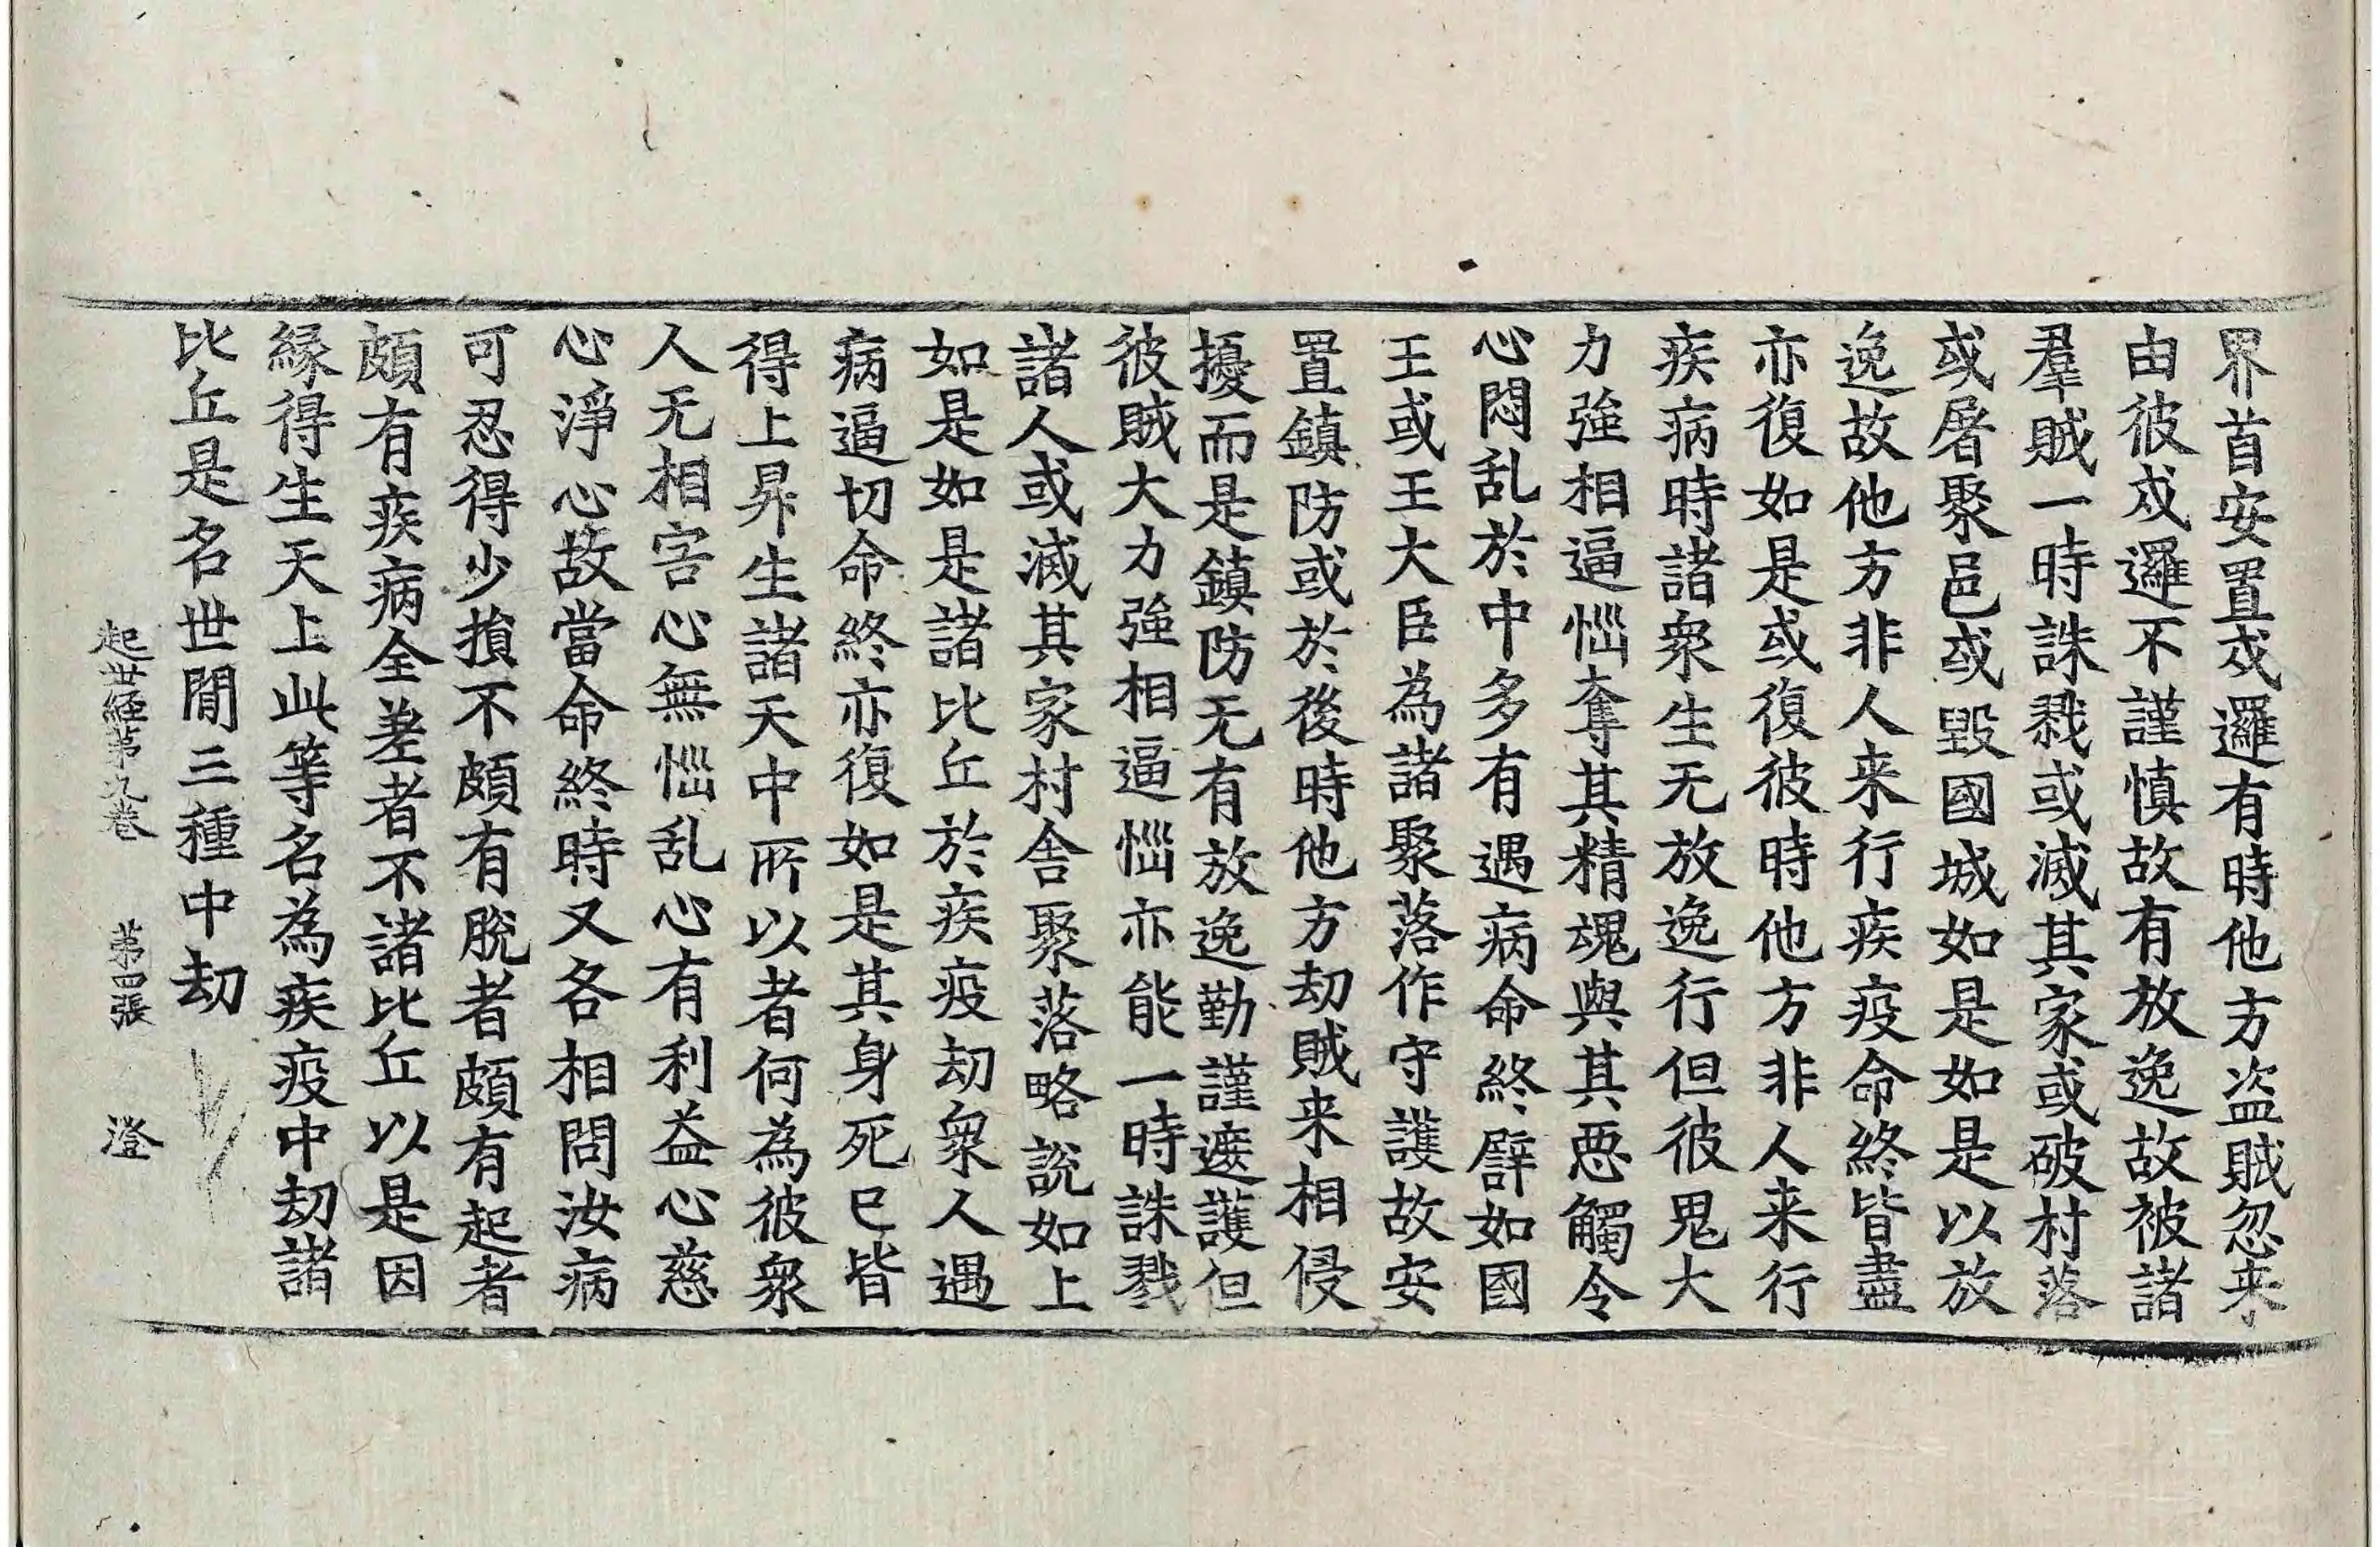 界首安置戍邏有時他方盗賊忽来
由彼戍邏不謹慎故有放逸故被諸
羣賊一時誅戮或滅其家或破村落
或屠聚邑或毀國城如是如是以放
逸故他方非人来行疾疫命終皆盡
亦復如是或復彼時他方非人来行
疾病時諸衆生无放逸行但彼鬼大
力強相逼惱奪其精魂與其惡觸令
心悶乱於中多有遇病命終譬如國
王或王大臣為諸聚落作守護故安
置鎮防或於後時他方劫賊来相侵
擾而是鎮防无有放逸勤謹遮護但
彼賊大力強相逼惱亦能一時誅戮
諸人或滅其家村舍聚落略說如上
如是如是諸比丘於疾疫劫衆人遇
病逼切命終亦復如是其身死已皆
得上昇生諸天中所以者何為彼衆
人无相害心無惱乱心有利益心慈
心淨心故當命終時又各相問汝病
可忍得少損不頗有脫者頗有起者
頗有疾病全差者不諸比丘以是因
緣得生天上此等名為疾疫中劫諸
比丘是名世間三種中劫
起世経第九巻 第四張 澄